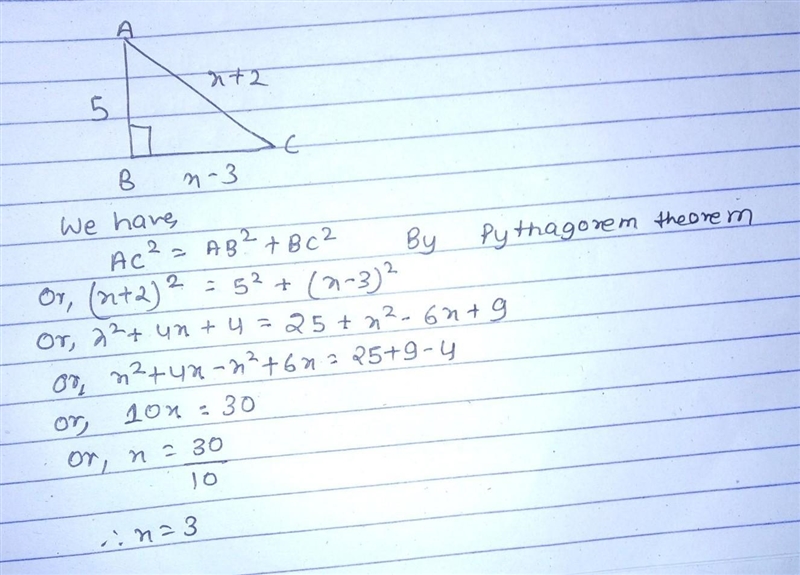 A
5
x+2
B
x-3
C
We have,
AC² = AB² + BC² By Pythagorem theorem
Or, (x+2)² = 5² + (x-3)²
Or, x²+ 4x + 4 = 25 + x² - 6x + 9
or, x²+4x-x²+6x = 25+9-4
or, 10x = 30
or, x = 30/10
∴ x = 3